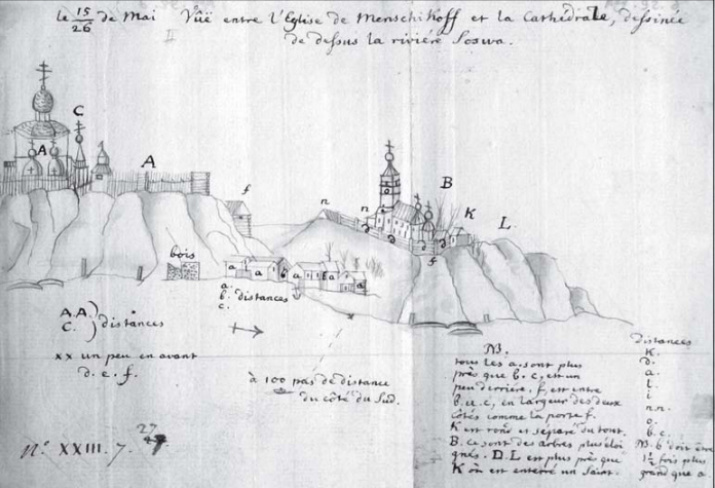 le 15/26 de Mai Vüe entre l'Eglise de Menschikoff et la Cathédrale, dessinée
de dessus la riviére Soswa.
II
C
A
A
f
n
n
B
K
L.
f
bois
a a a a a
a.
b. distances
c.
A.A.
C. distances
xx un peu en avant
d. e. f.
à 100 pas de distance
du côté du Sud.
NB.
tous les a. sont plus
près que b. c, est un
peu derriére. f, est entre
b. et c, en largeur des deux
côtés comme la porte f.
K est rond et séparé du tout.
B. ce sont des arbres plus éloi
gnés. D. L est plus près que
K où est enterré un Saint.
distances
K.
d.
a.
l.
i
n.n.
o.
b. c.
NB. b doit être
1½ fois plus
grand que a.
27
N.º XXIII. 7.